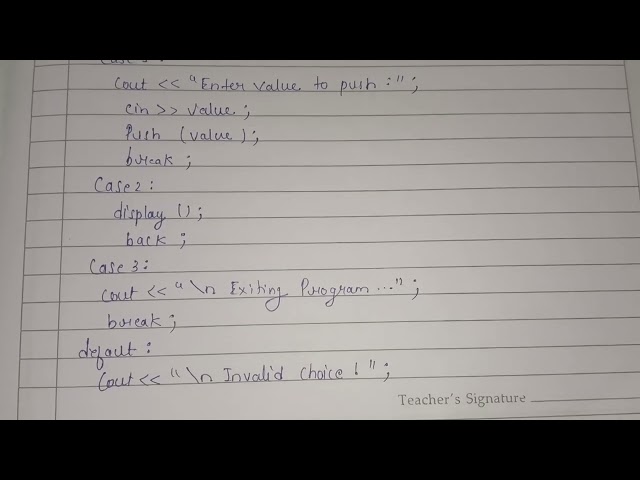 Case 1 :
Cout << "Enter value to push :" ;
cin >> value ;
Push (value) ;
break ;
Case 2 :
display () ;
back ;
Case 3 :
cout << "\n Exiting Program ..." ;
break ;
default :
Cout << "\n Invalid choice ! " ;
Teacher's Signature